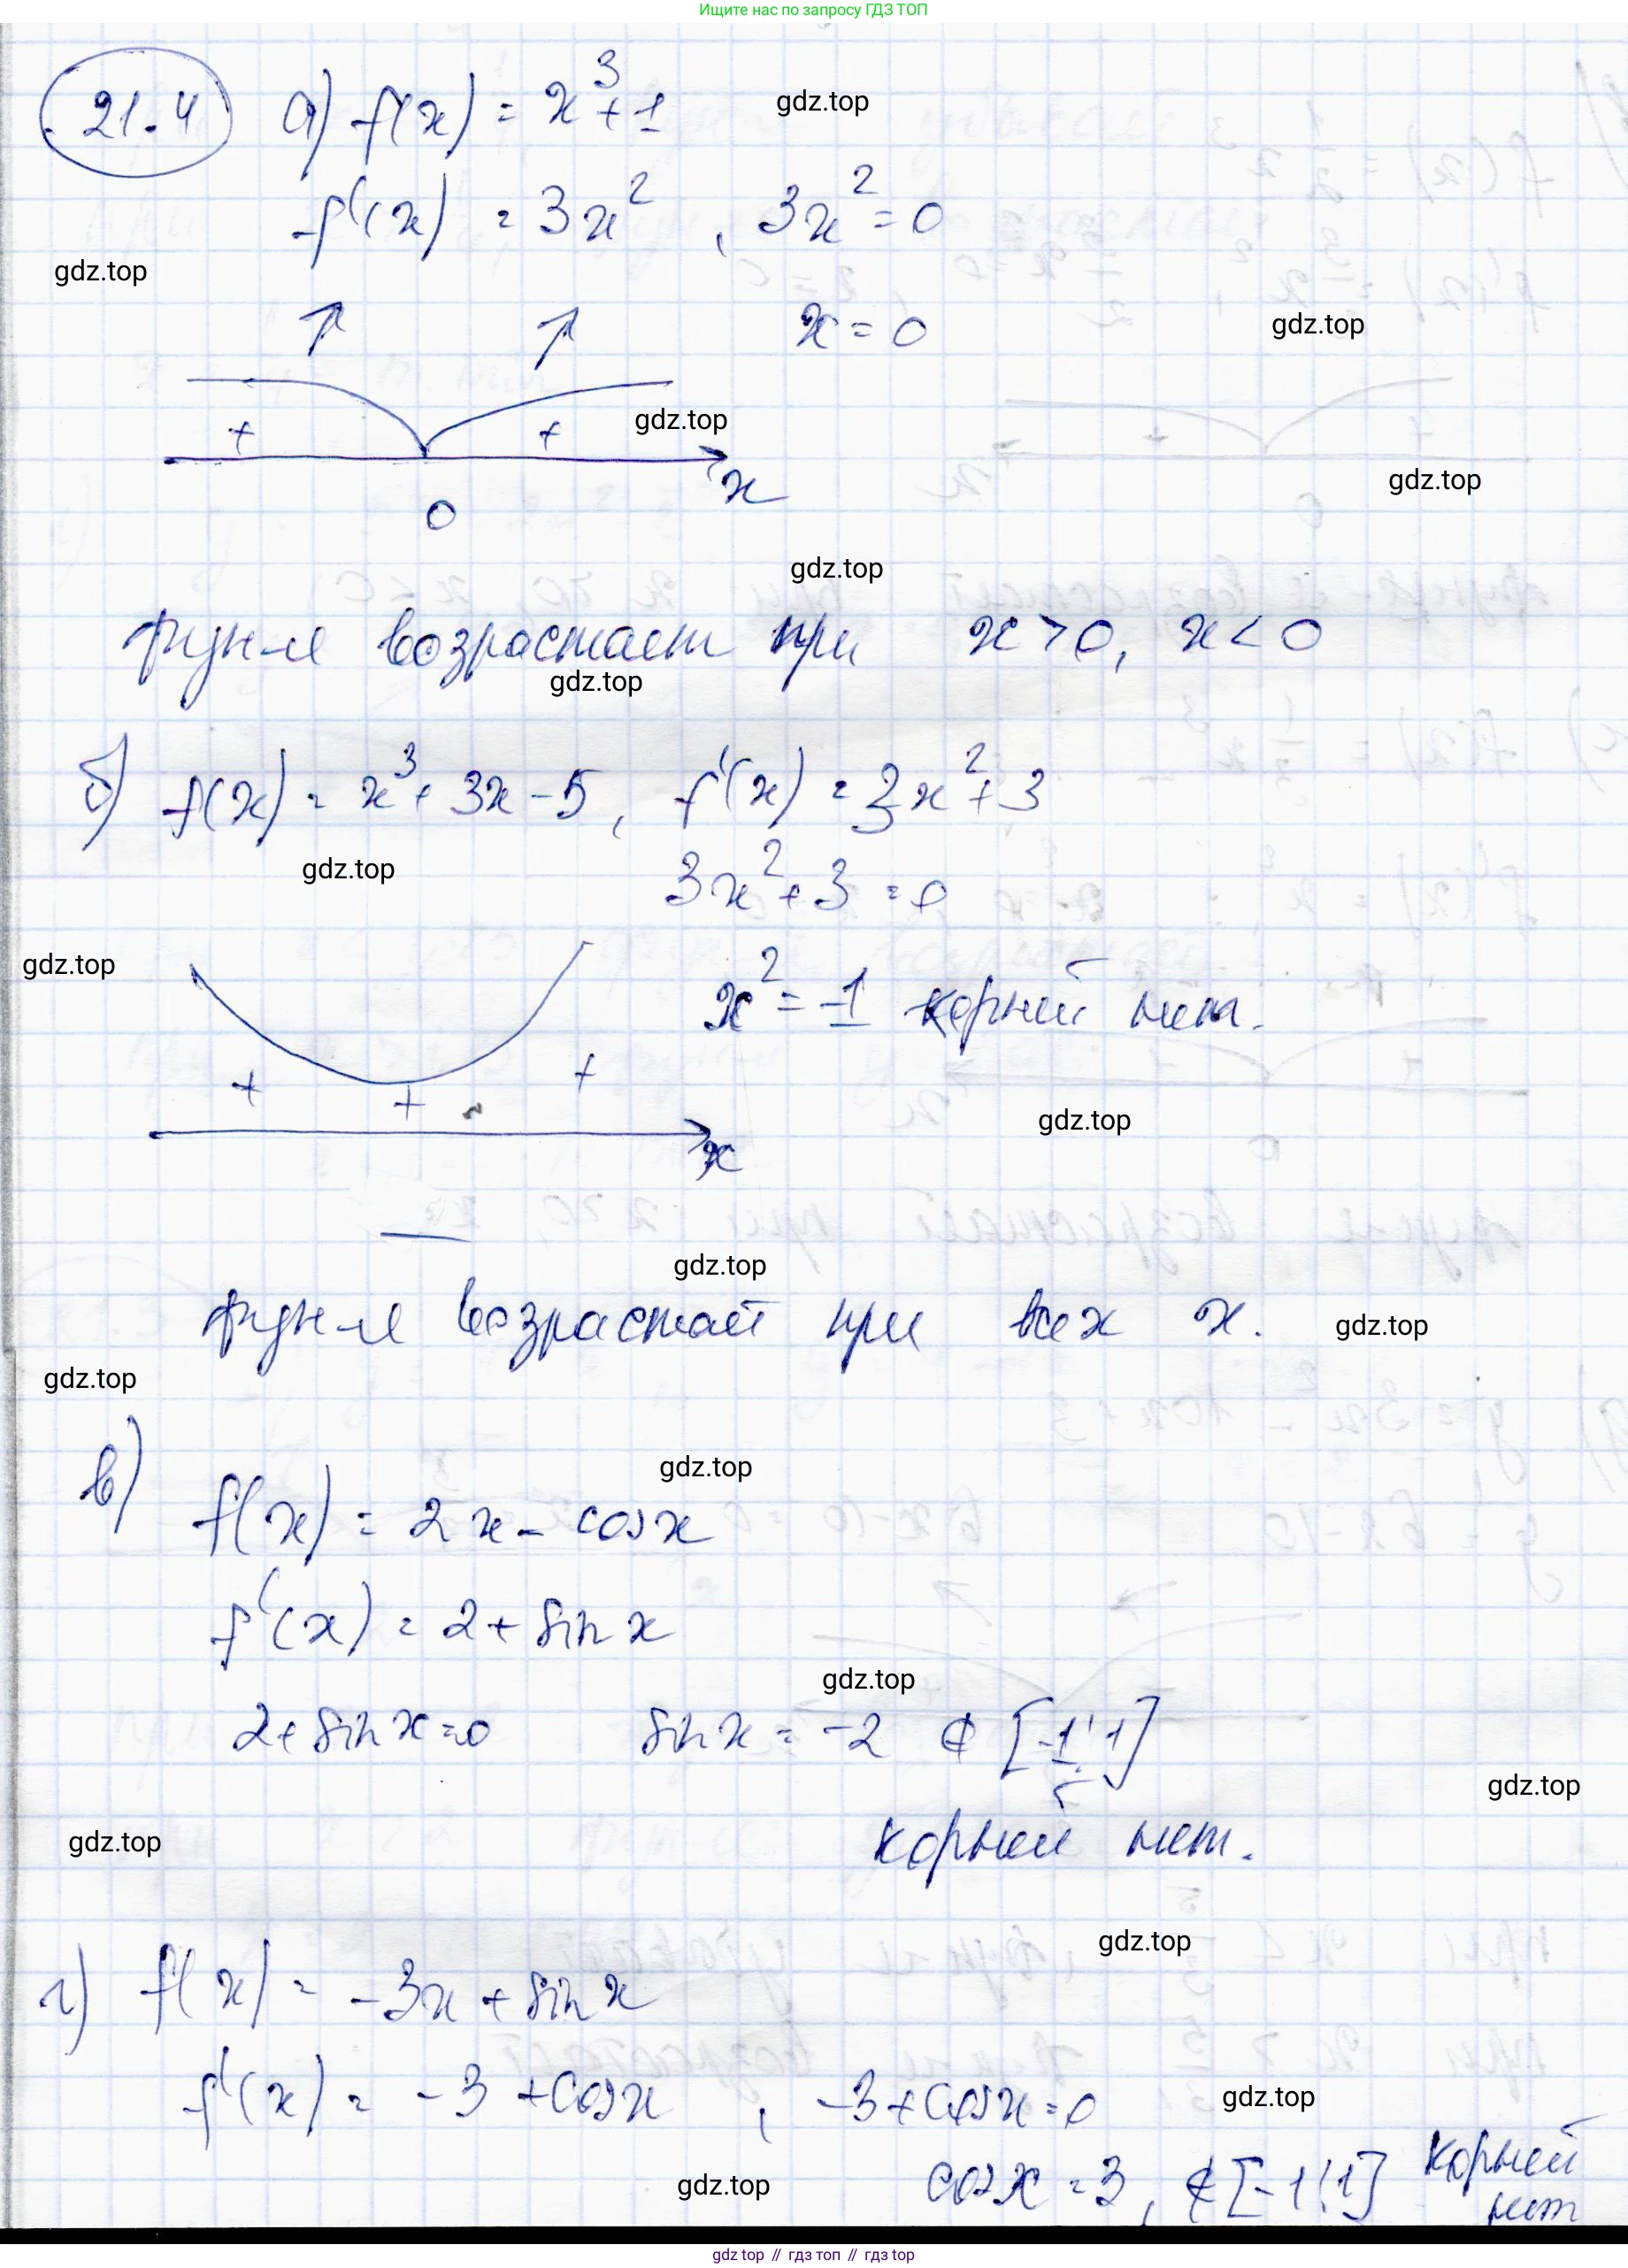 Ищите нас по запросу ГДЗ ТОП
21.4 а) f(x) = x³+1
gdz.top
f'(x) = 3x², 3x²=0
gdz.top
x=0
gdz.top
+ +
gdz.top
x
gdz.top
0
gdz.top
функ-я возрастает при x>0, x<0
gdz.top
б) f(x) = x³+3x-5, f'(x) = 3x²+3
gdz.top
3x²+3=0
gdz.top
x²=-1 корней нет.
+ + +
gdz.top
x
gdz.top
функ-я возрастает при всех x.
gdz.top
gdz.top
в)
gdz.top
f(x) = 2x-cosx
f'(x) = 2+sinx
gdz.top
2+sinx=0 sinx=-2 ∉ [-1;1]
gdz.top
gdz.top
корней нет.
gdz.top
г) f(x) = -3x+sinx
f'(x) = -3+cosx, -3+cosx=0
gdz.top
cosx=3, ∉[-1;1] корней нет
gdz.top
gdz top // гдз топ // гдз top